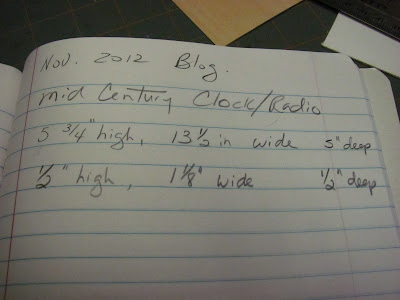 Nov. 2012 Blog.
mid Century Clock/Radio
5 3/4" high, 13 1/2 in wide 5" deep
1/2" high, 1 1/8" wide 1/2" deep